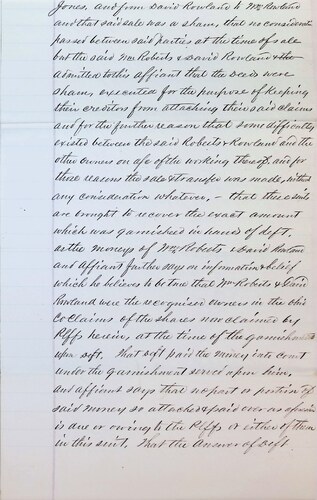 Jones, and from David Rowland to Wm Rowland
and that said sale was a sham, that no consideration
passed between said parties at the time of sale
but the said Wm Roberts & David Rowland & the
admitted to this affiant that the Deeds were
sham, executed for the purpose of keeping
their creditors from attaching their said claims
and for the further reason that some difficulty
existed between the said Roberts & Rowland and the
other owners on a/c of the working thereof, and for
these reasons the sale & transfer was made, without
any consideration whatever, – that these suits
are brought to recover the exact amount
which was garnisheed in hands of deft.
as the moneys of Wm Roberts & David Rowland
and Affiant further says on information & belief
which he believes to be true that Wm Roberts & David
Rowland were the recognised owners in the Ohio
Co Claims of the shares now claimed by
Plffs herein, at the time of the garnishment
upon deft. That deft paid the money into court
under the garnishment served upon him,
and affiant says that no part or portion of
said money so attached & paid over as aforesaid
is due or owing to the Plffs or either of them
in this suit. That the Answer of Deft